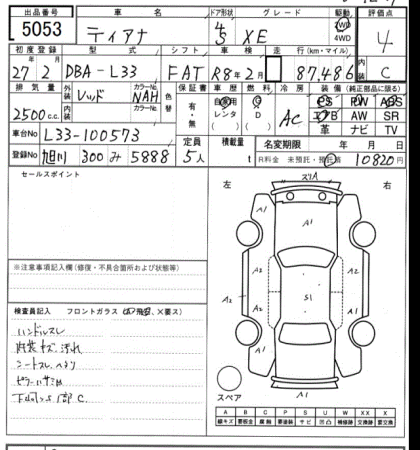 出品番号 車名 ドア形状 グレード 駆動 評価点
5053 ティアナ 4 S XE 2WD 4WD 4
初度登録 型式 シフト 車検 走行(km・マイル) 内装
27年2月 DBA-L33 FAT R8年2月 87,486 C
排気量 外装 カラーNo. 色替 保証書 車歴 燃料 冷房 装備(純正部品に限る)
2500cc レッド NAH 有・無 自家用 レンタ ( ) G D ( ) AC PS PW
内装 カラーNo. エアB AW SR
車台No L33-100573 革 ナビ TV
定員 積載量 名変期限 年 月 日
登録No 旭川 300 み 5888 5人 t R料金 未預託・預託済 10820円
セールスポイント
左 右
スリA
A1
A1
A2 A2
A2 A2 S1
A1
A1 A1
A1
スペア
※注意事項記入欄(修復・不具合箇所および状態)
検査員記入 フロントガラス (×要ス)
ハンドルスレ
内装キズ、汚れ
シートスレ、ヘタリ
下回りS 1部C.
A B C P S U W X XX
線キズ 要板金 腐蝕 要塗装 サビ 凹凸 補修跡 要交換